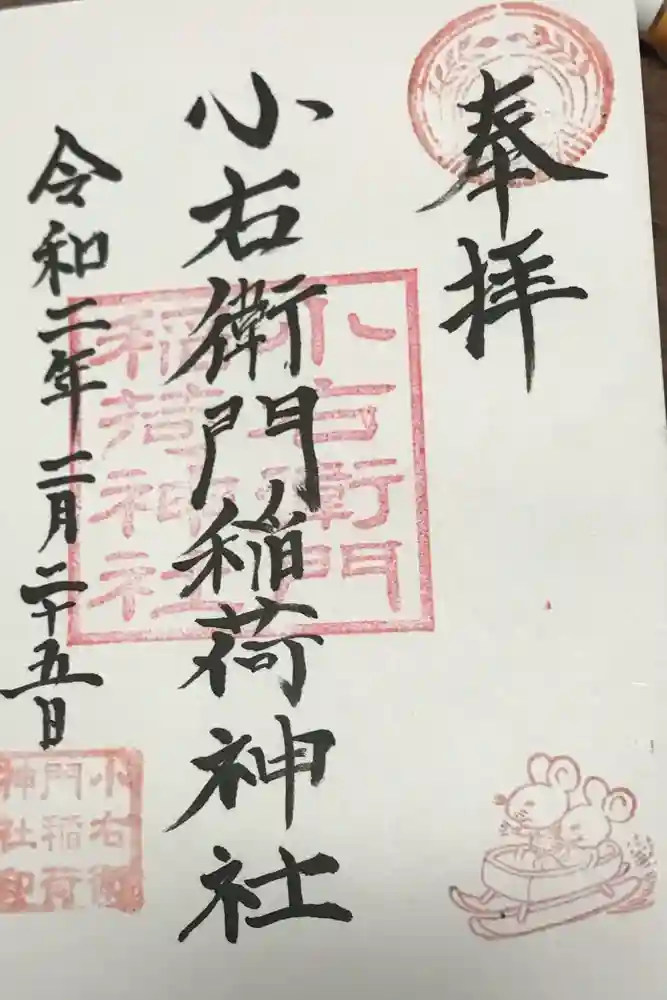 奉拝
小右衛門稲荷神社
令和二年 二月二十五日
小右衛門
稲荷神社
小右衛
門稲荷
神社